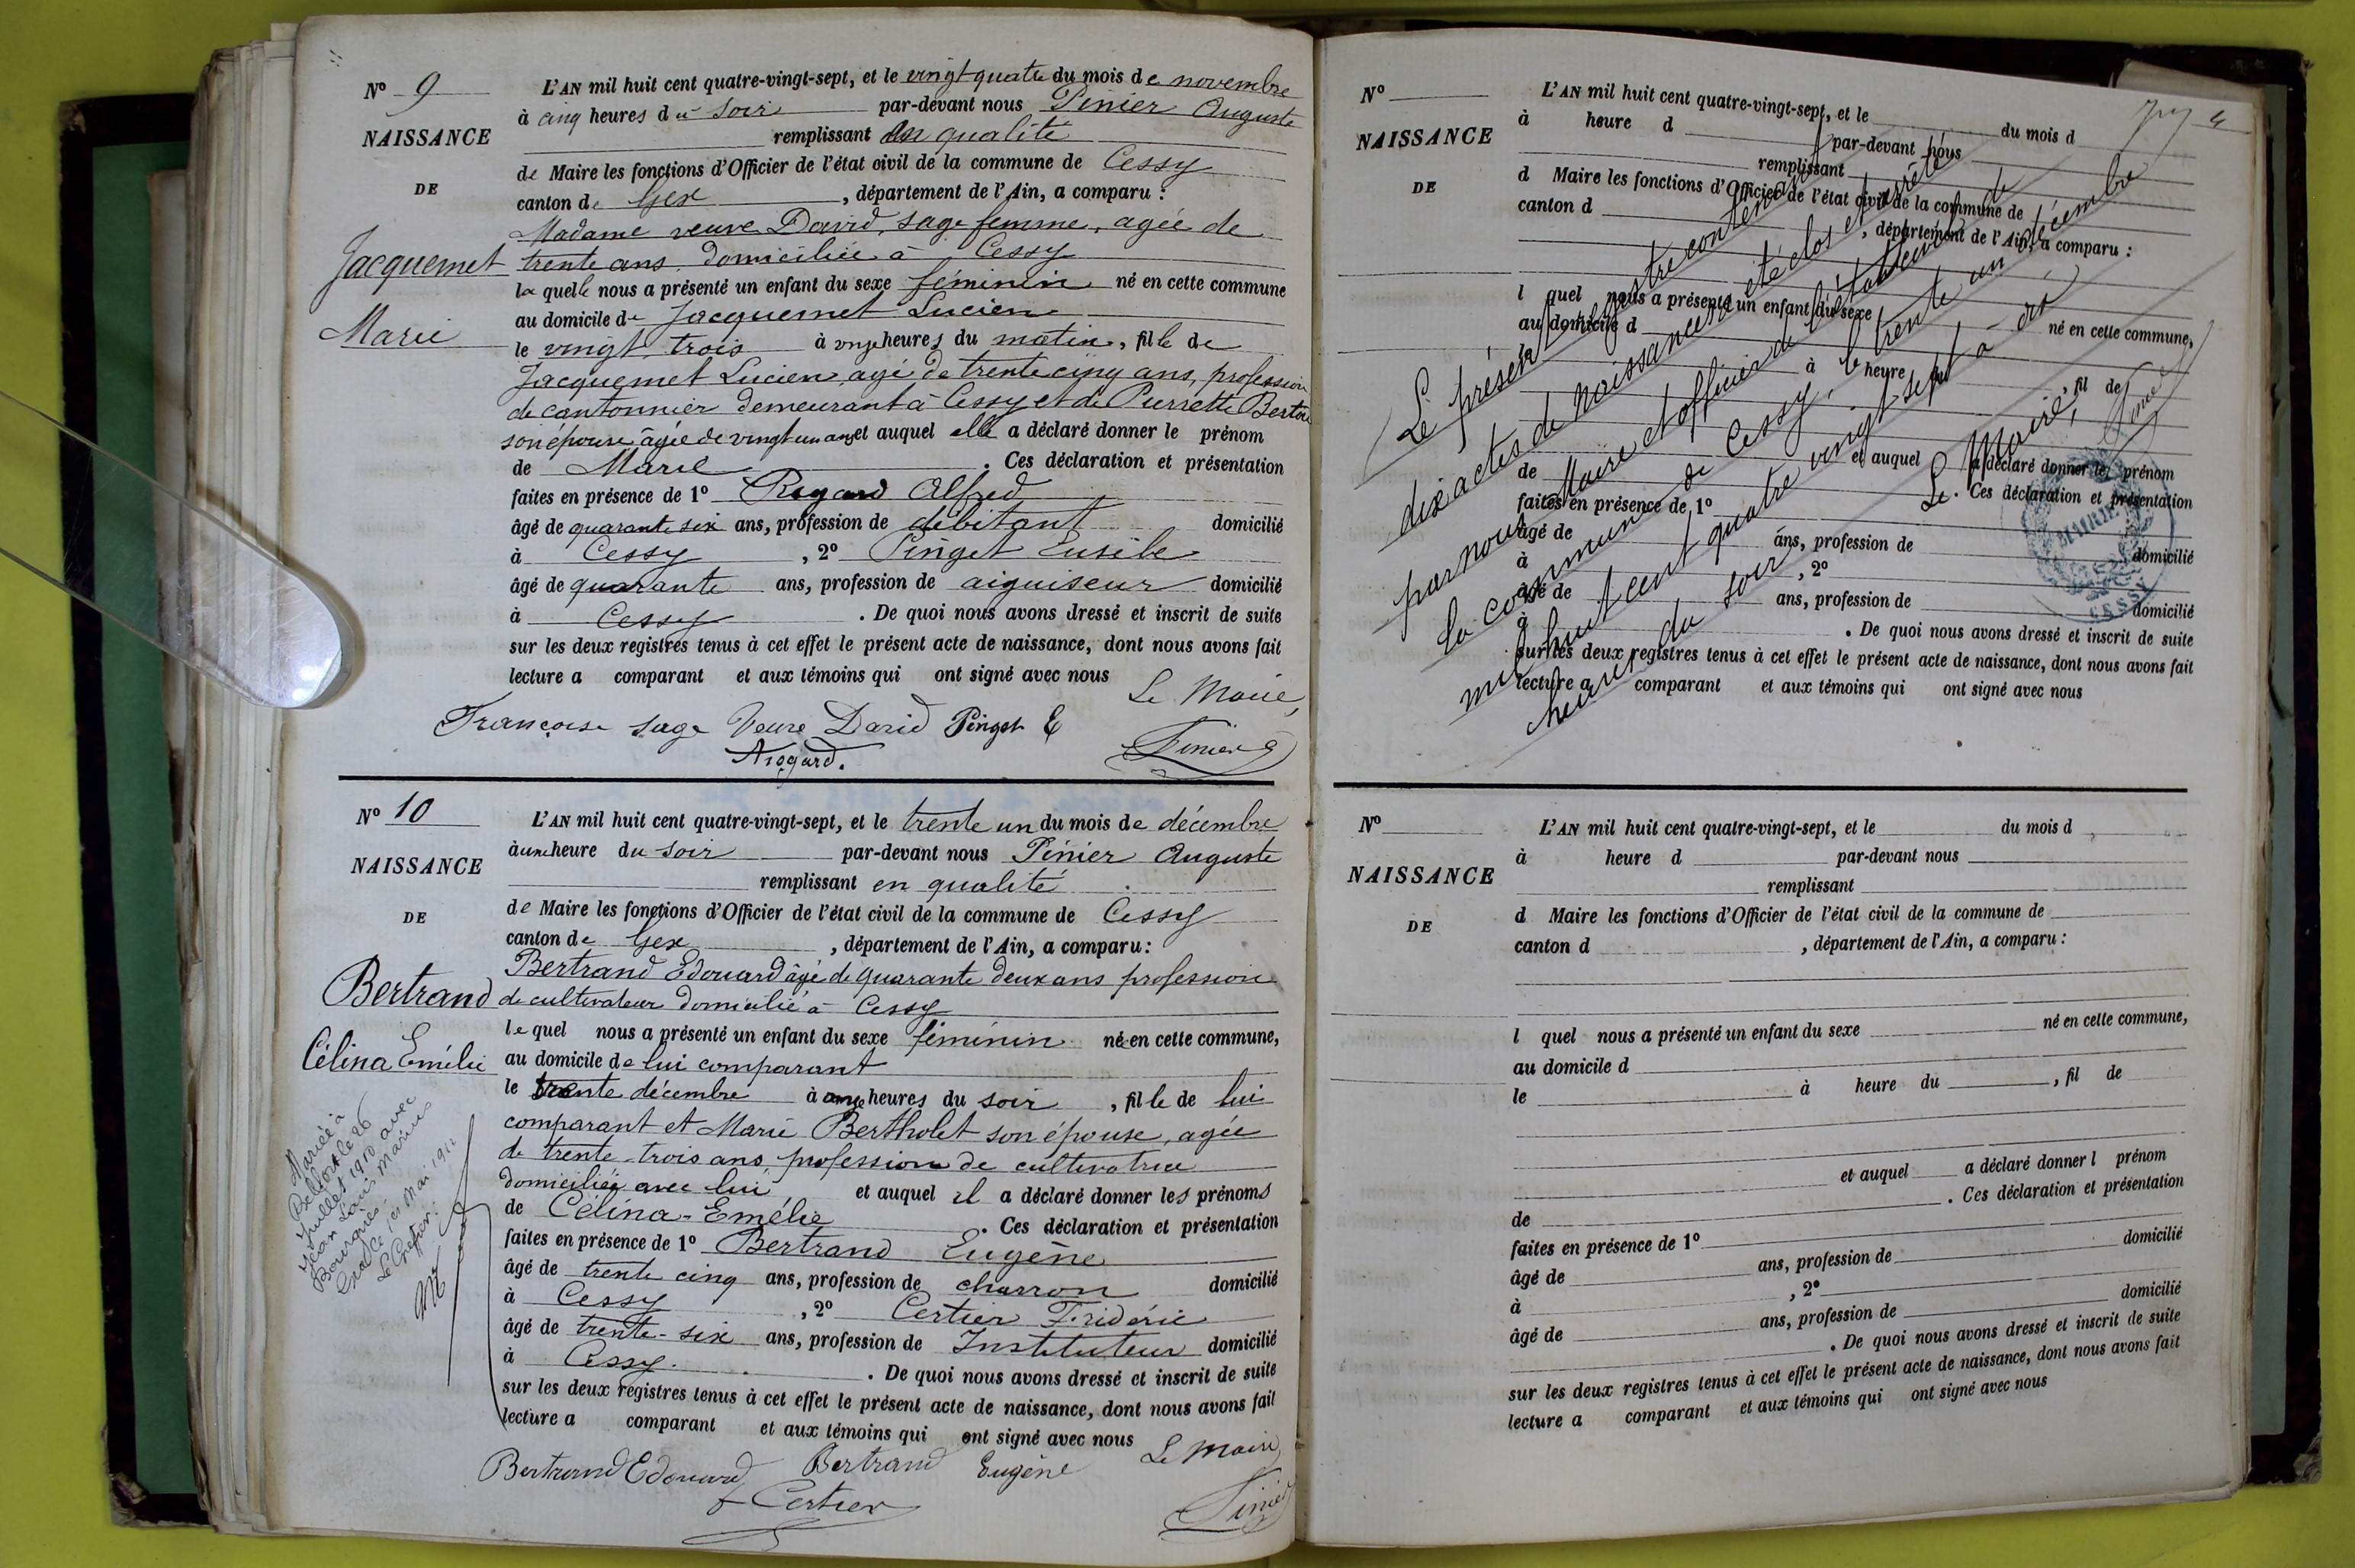 Nº 9
NAISSANCE
DE
Jacquemet
Marie
L'AN mil huit cent quatre-vingt-sept, et le vingt quatre du mois de novembre
à cinq heures du soir par-devant nous Pinier Auguste
remplissant en qualité
de Maire les fonctions d'Officier de l'état civil de la commune de Cessy
canton de Gex, département de l'Ain, a comparu :
Madame veuve David, sage femme, agée de
trente ans domiciliée à Cessy
la quelle nous a présenté un enfant du sexe féminin né en cette commune
au domicile de Jacquemet Lucien
le vingt trois à onze heures du matin, fille de
Jacquemet Lucien agé de trente cinq ans, profession
de cantonnier demeurant à Cessy et de Pierrette
son épouse âgée de vingt un ans et auquel elle a déclaré donner le prénom
de Marie. Ces déclaration et présentation
faites en présence de 1º Rogard Alfred
âgé de quarante six ans, profession de débitant domicilié
à Cessy, 2º Pinget Eusèbe
âgé de quarante ans, profession de aiguiseur domicilié
à Cessy. De quoi nous avons dressé et inscrit de suite
sur les deux registres tenus à cet effet le présent acte de naissance, dont nous avons fait
lecture a comparant et aux témoins qui ont signé avec nous
Le Maire,
Françoise sage Veuve David Pinget E
Pinier
Nº 10
NAISSANCE
DE
Bertrand
Célina Emélie
L'AN mil huit cent quatre-vingt-sept, et le trente un du mois de décembre
à une heure du soir par-devant nous Pinier Auguste
remplissant en qualité
de Maire les fonctions d'Officier de l'état civil de la commune de Cessy
canton de Gex, département de l'Ain, a comparu :
Bertrand Edouard âgé de quarante deux ans profession
de cultivateur domicilié à Cessy
le quel nous a présenté un enfant du sexe féminin née en cette commune,
au domicile de lui comparant
le trente décembre à onze heures du soir, fille de lui
comparant et Marie Bertholet son épouse, agée
de trente-trois ans, profession de cultivatrice
domiciliée avec lui et auquel il a déclaré donner les prénoms
de Célina-Emélie. Ces déclaration et présentation
faites en présence de 1º Bertrand Eugène
âgé de trente cinq ans, profession de charron domicilié
à Cessy, 2º Certier Fridéric
âgé de trente-six ans, profession de Instituteur domicilié
à Cessy. De quoi nous avons dressé et inscrit de suite
sur les deux registres tenus à cet effet le présent acte de naissance, dont nous avons fait
lecture a comparant et aux témoins qui ont signé avec nous
Le Maire,
Bertrand Edouard Bertrand Eugène
Certier
Pinier
Mariée à
le 26
juillet 1910 avec
Jean Louis Marius
Mai 1911
Le Greffier:
4
Nº
NAISSANCE
DE
L'AN mil huit cent quatre-vingt-sept, et le du mois d
à heure d par-devant nous
remplissant
d Maire les fonctions d'Officier de l'état civil de la commune de
canton d , département de l'Ain, a comparu :
l quel nous a présenté un enfant du sexe né en cette commune,
au domicile d
le à heure du , fil de
et auquel a déclaré donner le prénom
de . Ces déclaration et présentation
faites en présence de 1º
âgé de ans, profession de domicilié
à , 2º
âgé de ans, profession de domicilié
à . De quoi nous avons dressé et inscrit de suite
sur les deux registres tenus à cet effet le présent acte de naissance, dont nous avons fait
lecture a comparant et aux témoins qui ont signé avec nous
Le présent registre contenant
dix actes de naissances a été clos et arrêté
par nous Maire et officier de l'état civil de
la commune de Cessy, le trente un décembre
mil huit cent quatre vingt-sept à six
heures du soir
Le Maire,
Pinier
MAIRIE
CESSY
Nº
NAISSANCE
DE
L'AN mil huit cent quatre-vingt-sept, et le du mois d
à heure d par-devant nous
remplissant
d Maire les fonctions d'Officier de l'état civil de la commune de
canton d , département de l'Ain, a comparu :
l quel nous a présenté un enfant du sexe né en cette commune,
au domicile d
le à heure du , fil de
et auquel a déclaré donner l prénom
de . Ces déclaration et présentation
faites en présence de 1º
âgé de ans, profession de domicilié
à , 2º
âgé de ans, profession de domicilié
. De quoi nous avons dressé et inscrit de suite
sur les deux registres tenus à cet effet le présent acte de naissance, dont nous avons fait
lecture a comparant et aux témoins qui ont signé avec nous